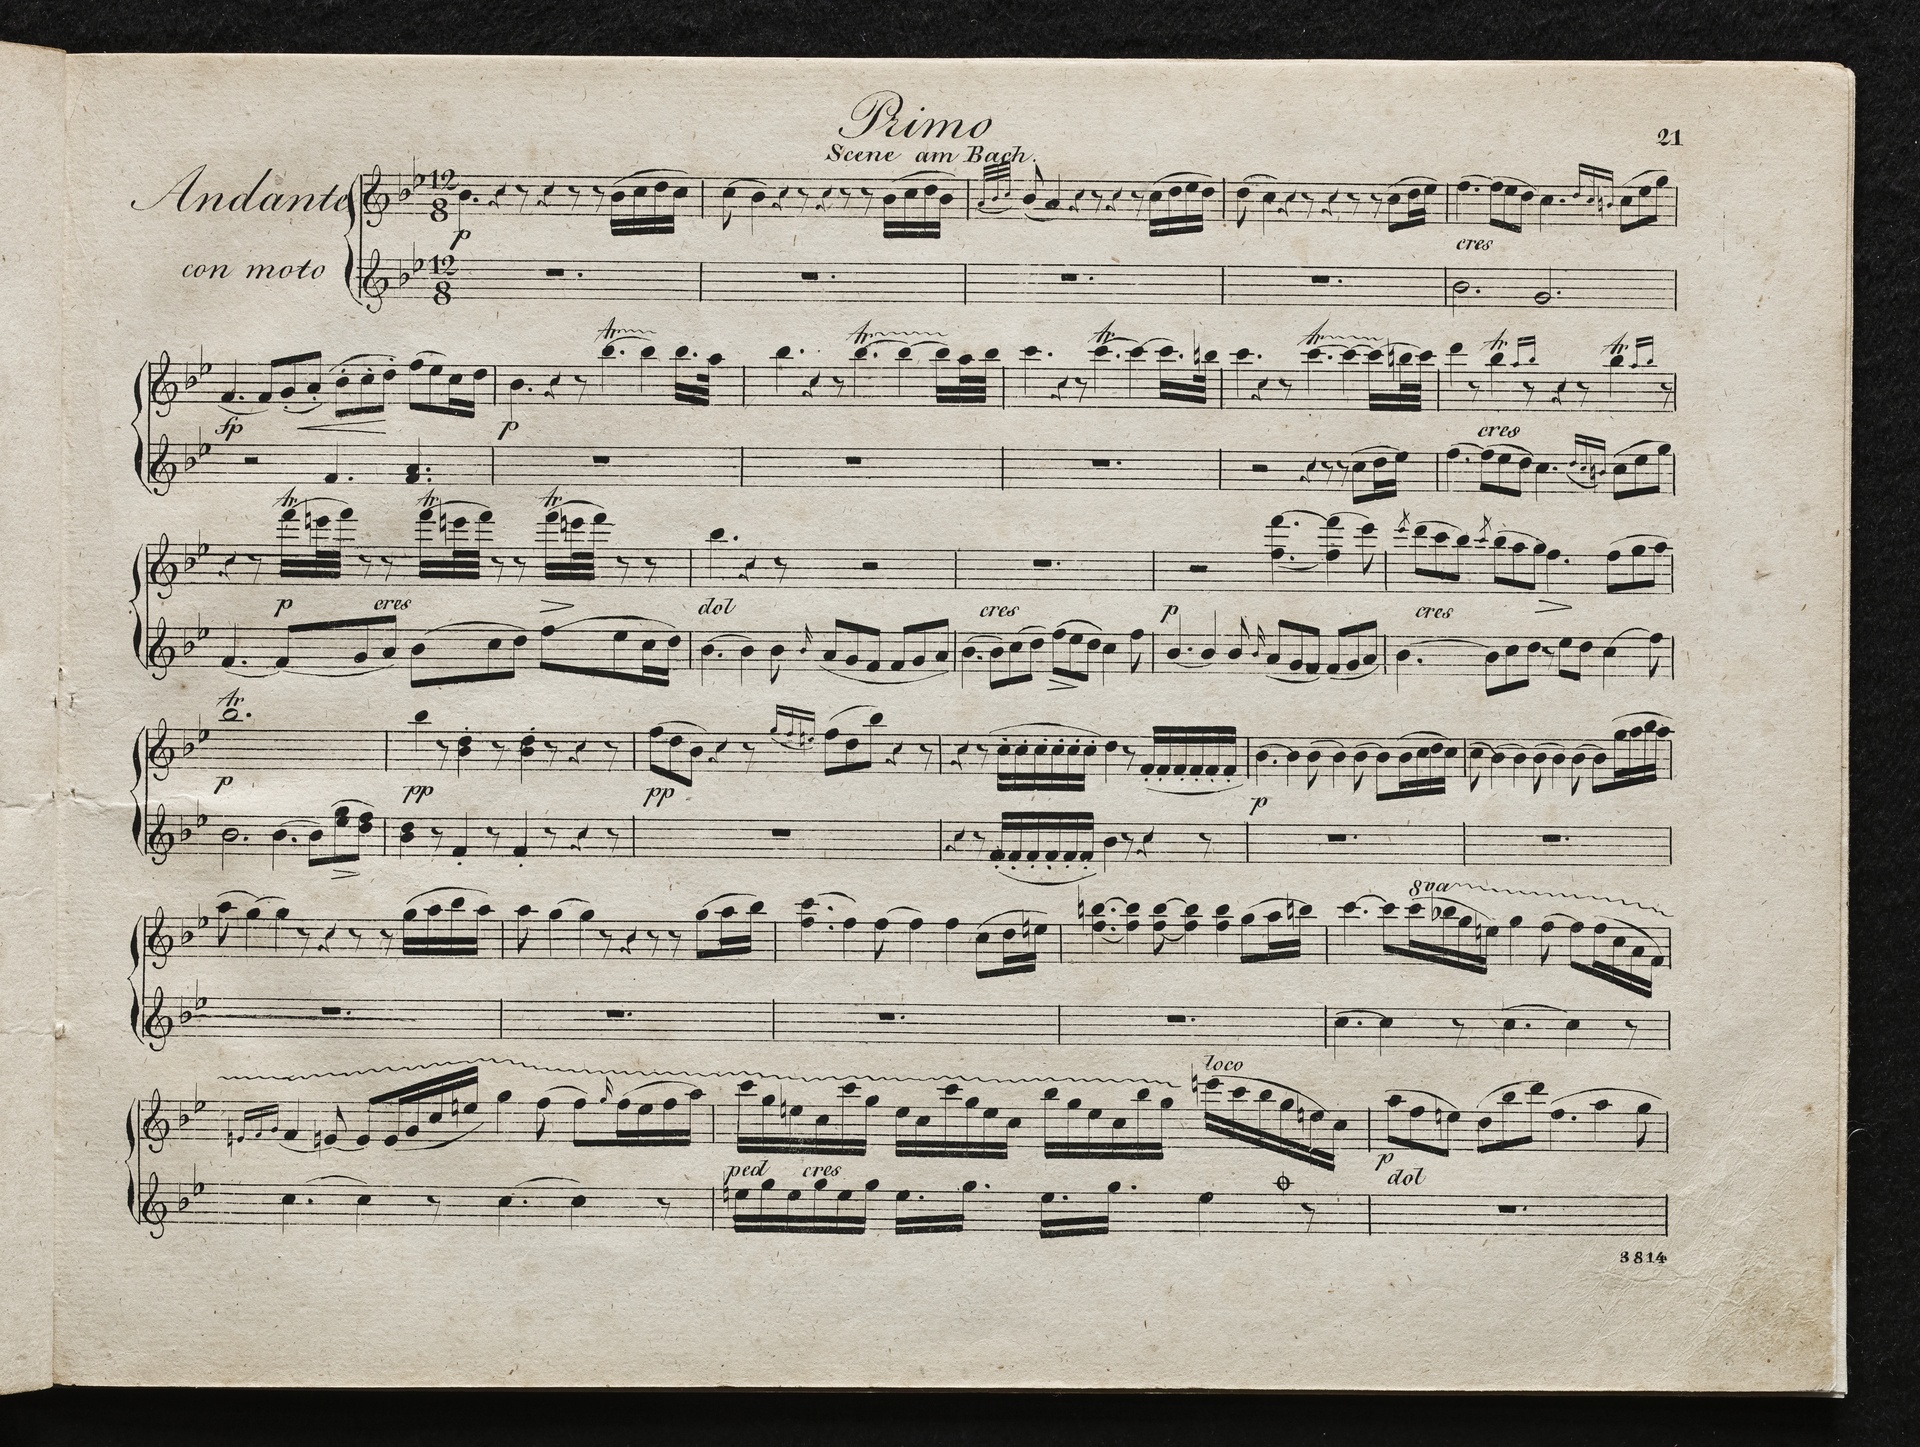 Primo
21
Scene am Bach.
Andante
con moto
12
8
p
cres
12
8
tr
tr
tr
tr
tr
tr
fp
p
cres
tr
tr
tr
p
cres
dol
cres
p
cres
tr
p
pp
pp
p
8va
loco
ped
cres
p
dol
3814